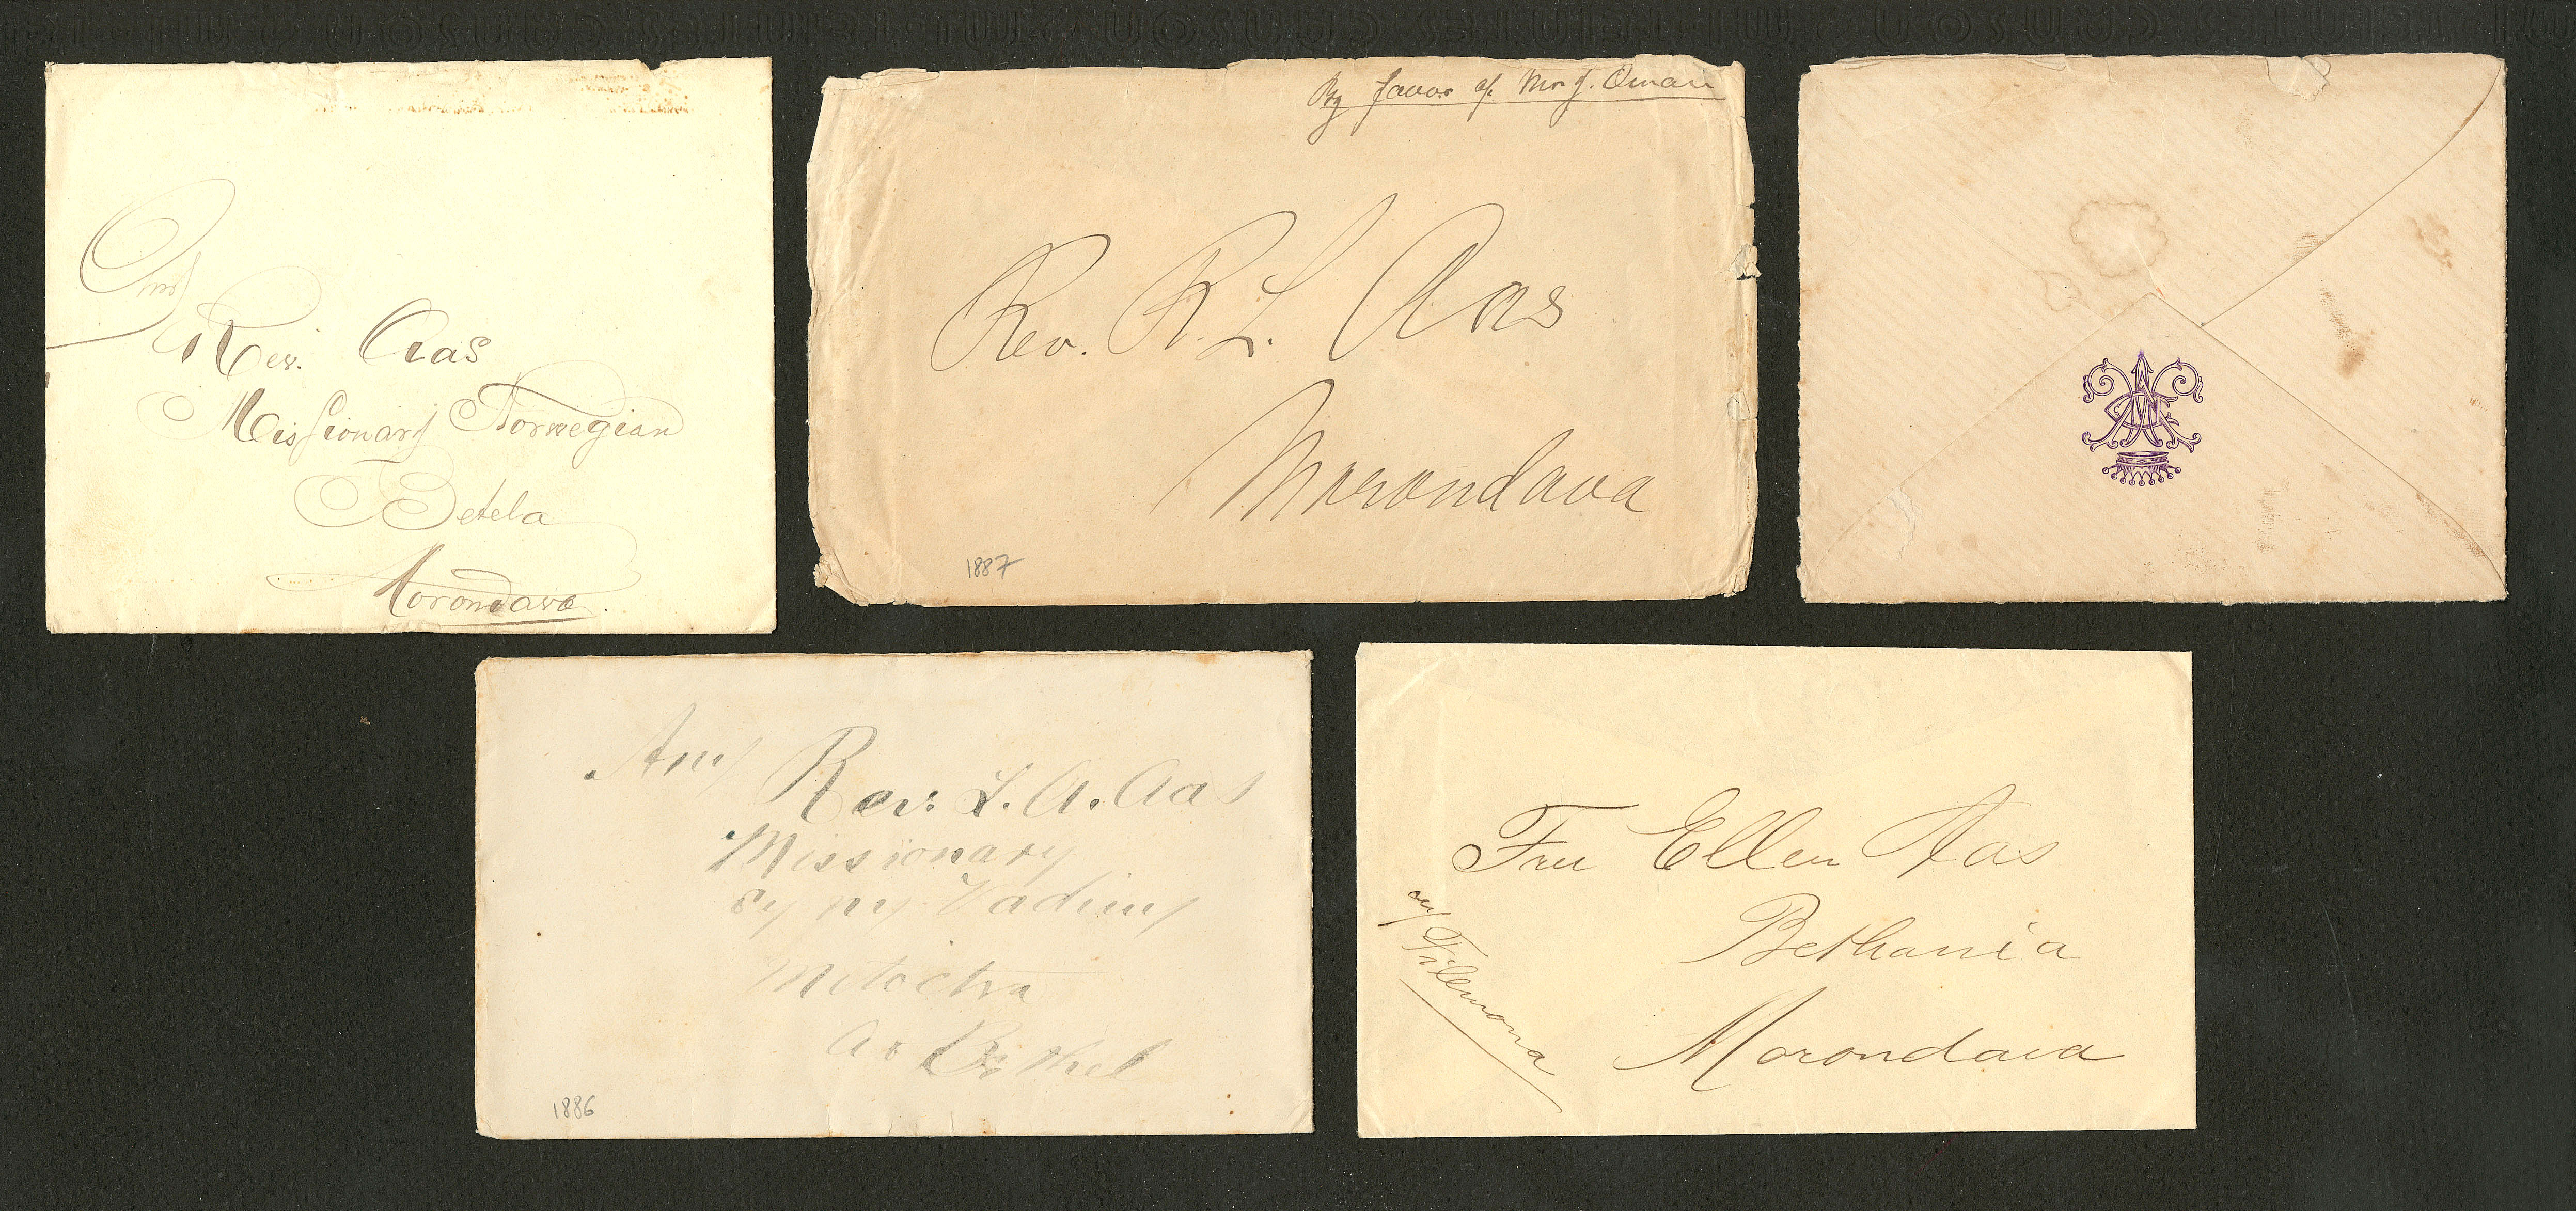 Rev. Aas
Missionary Norwegian
Betela
Morondava.
By favor of Mr J. Oman
Rev. R. L. Aas
Morondava
1887
Any
Rev. L. A. Aas
Missionary
Bethel
1886
Fru Ellen Aas
Bethania
Morondava
Filemona